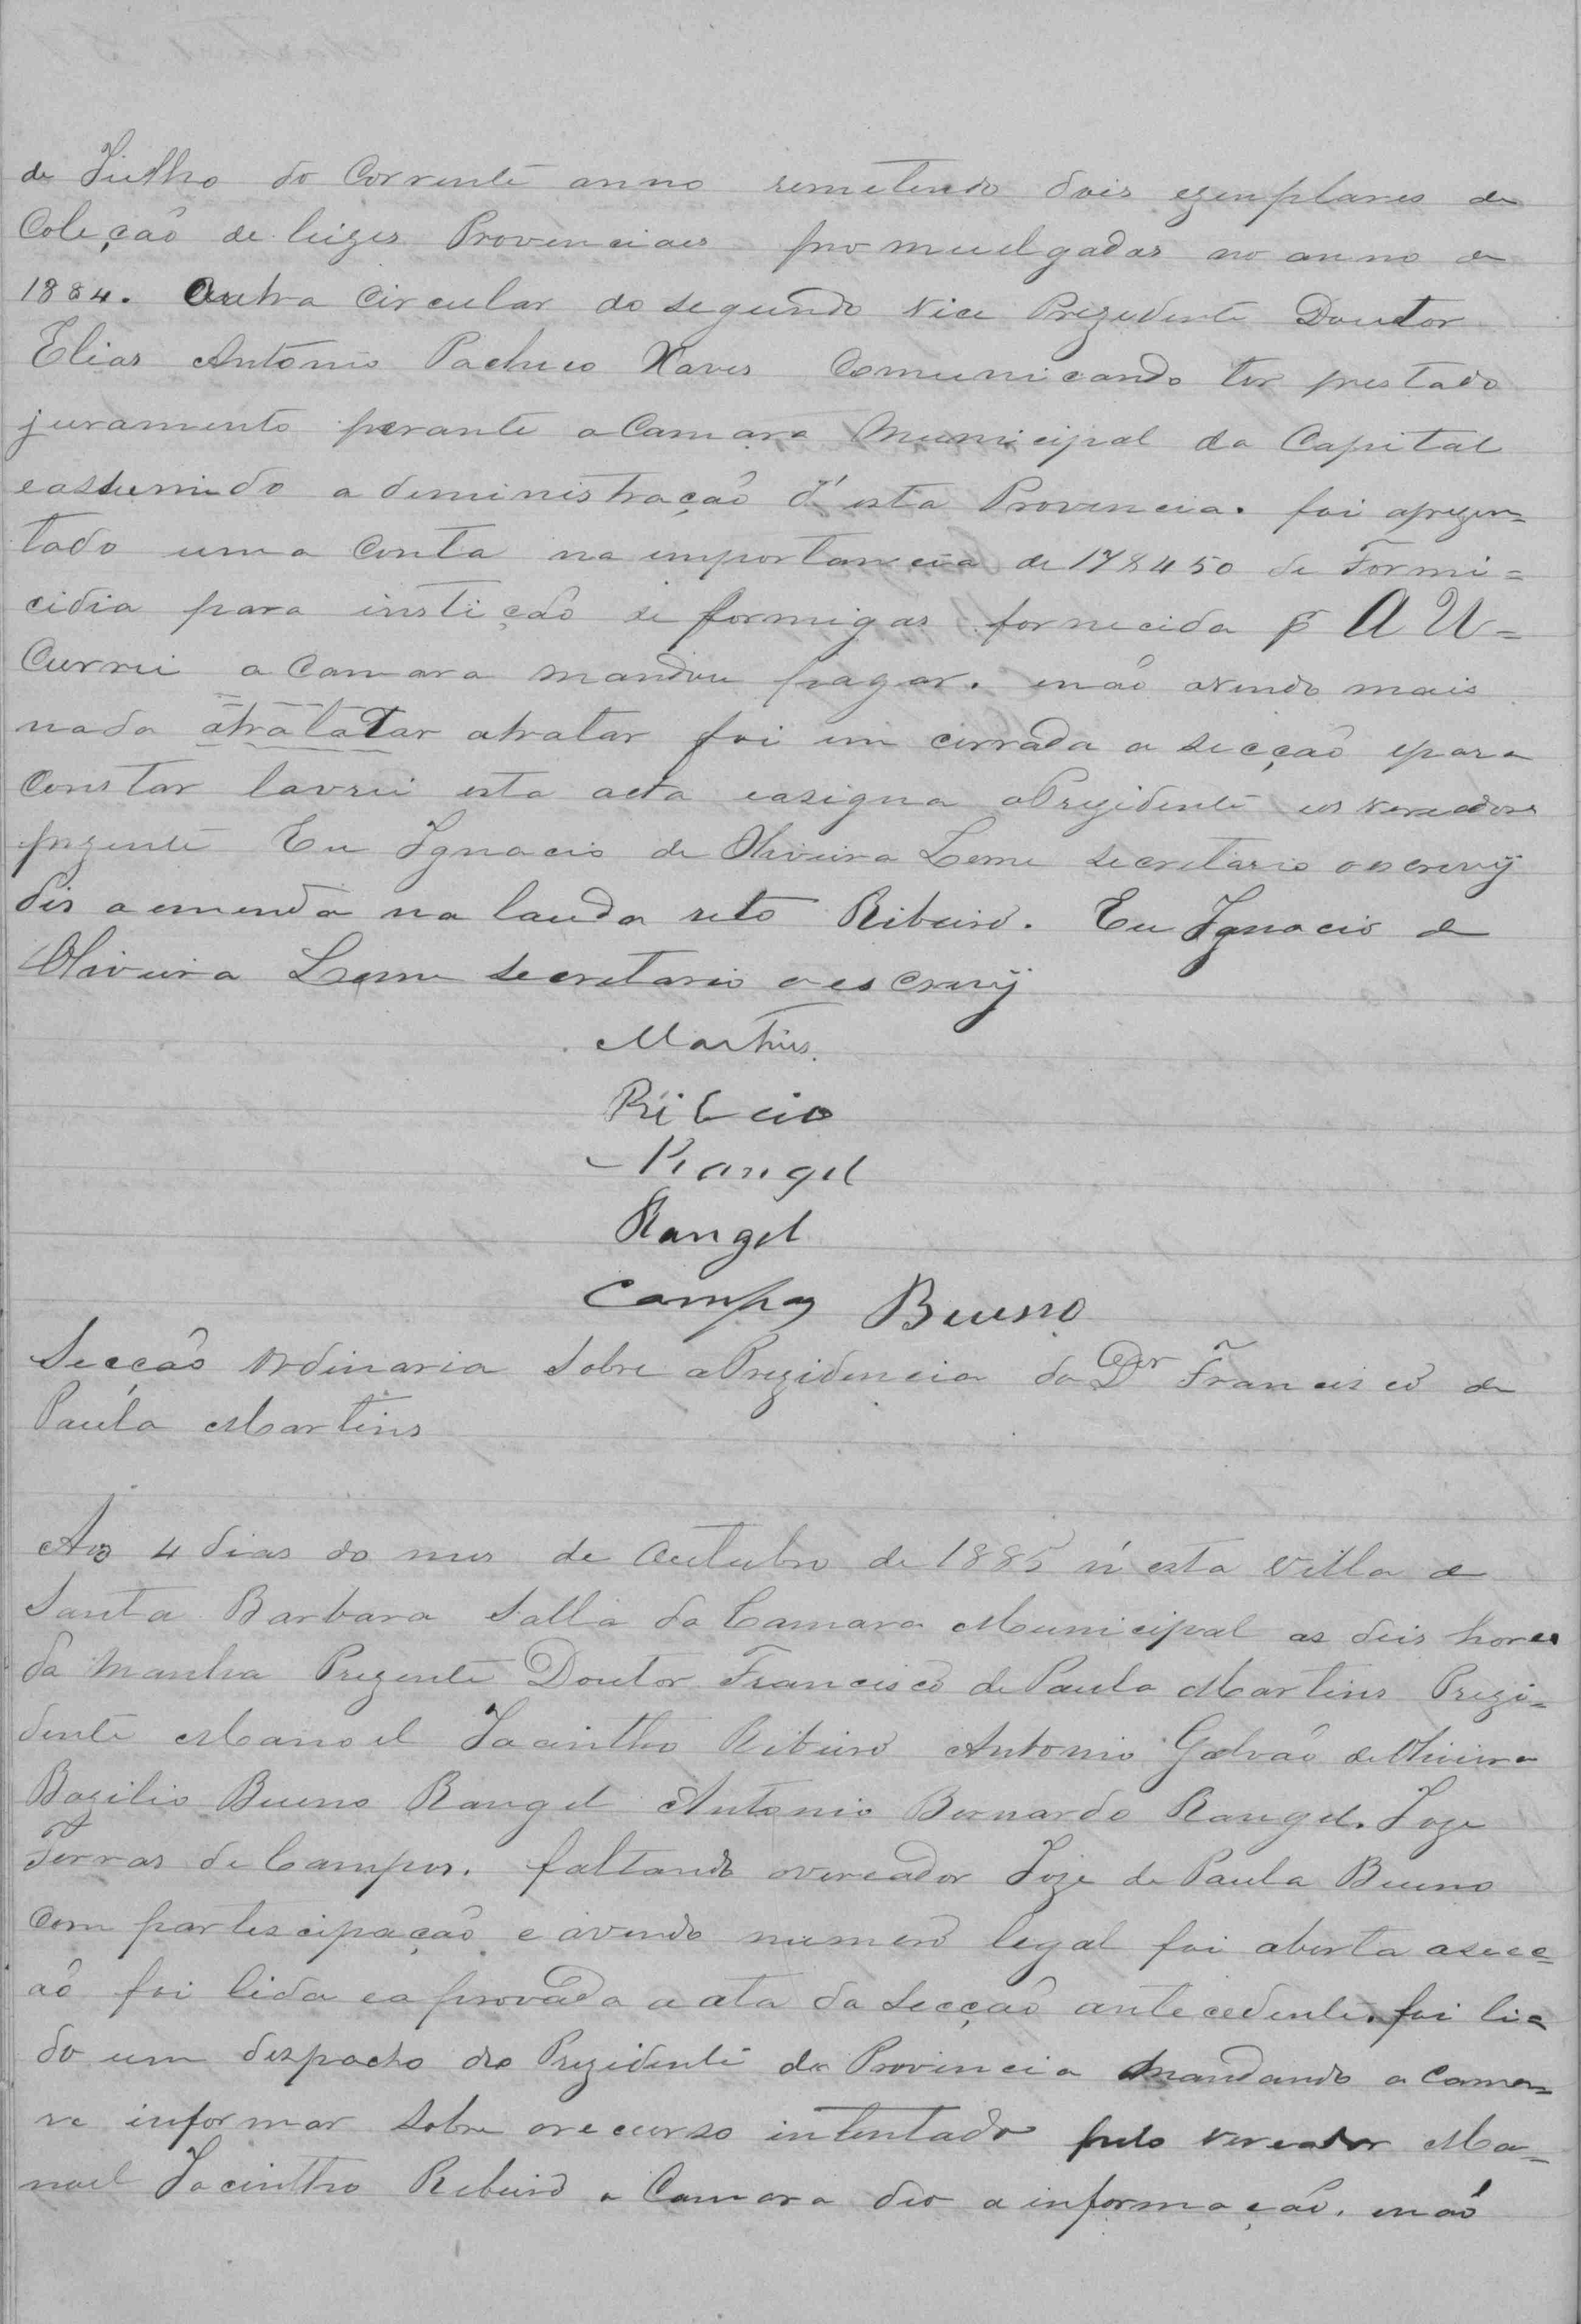 de Julho do Corrente anno remetendo dois ezenplares da
Coleção de leizes Provenciaes promuulgadas no anno de
1884. Outra Circular do segundo Vice Prezidente Doutor
Elias Antonio Pacheco Xaves Comunicando ter prestado
juramento perante a Camara Municipal da Capital
eassumindo a deministração d'esta Provencia. foi aprezen=
tado uma Conta na emportancia de 178450 de Formi=
cidia para instição de formigas fornecida p A U=
Currii a Camara mandou pagar. enão avendo mais
nada atratatar atratar foi em cirrada a secção epara
Constar lavrei esta acta easigna oPrezidente eos vereadores
prezente Eu Ignacio de Oliveira Leme secretario oescrevij
dis aemenda na lauda reto Ribeiro. Eu Ignacio de
Oliveira Leme secretario oescrevij
Martins.
Ribeio
Rangel
Rangel
Campos Bueno
Secção Ordinaria Sobre aPrezidencia do Dr Francisco de
Paula Martins
Aos 4 dias do mes de Outubro de 1885 n'esta Villa de
Santa Barbara Salla da Camara Municipal as deis horas
da Manha Prezente Doutor Francisco de Paula Martins Prezi=
dente Manoel Jacintho Ribeiro Antonio Galvão de Oliveira
Bazilio Bueno Rangel Antonio Bernardo Rangel. Joze
Ferras de Campos. faltando overeador Joze de Paula Bueno
Com partescipação e avendo numero legal foi aberta asecc=
ão foi lida eaprovada a ata da Secção antecedente. foi li=
do um despacho do Prezidente da Provincia Mandando a Cama=
ra informar Sobre orecurso intentado pelo vereador Ma=
noel Jacintho Ribeiro a Camara deo a informação. enão